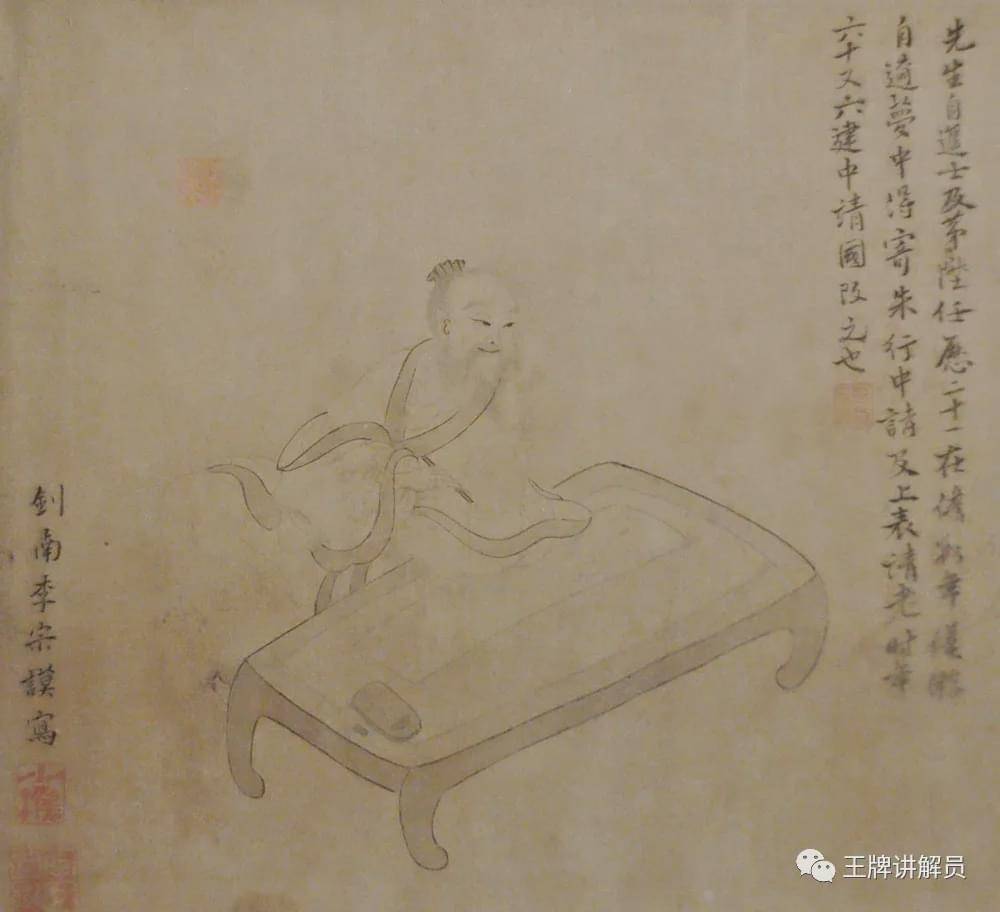 先生自進士及苐陞任歷二十一在儋數年後歸
自道夢中得寄朱行中詩及上表請老时年
六十又六建中靖國改元也
劍南李宗謨寫
王牌讲解员